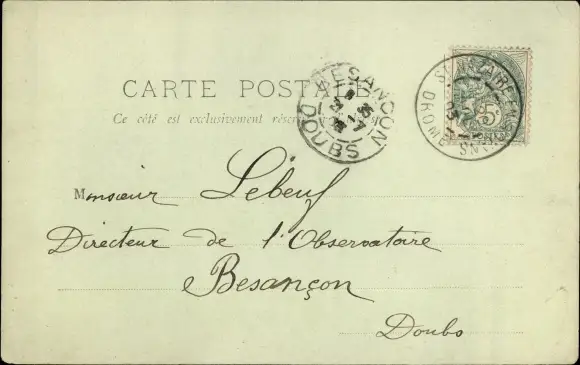 CARTE POSTALE
Ce côté est exclusivement réservé
BESANÇON
DOUBS
ST NAZAIRE-EN-ROYANS
DROME
5c
Monsieur Lebeuf
Directeur de l'Observatoire
Besançon
Doubs